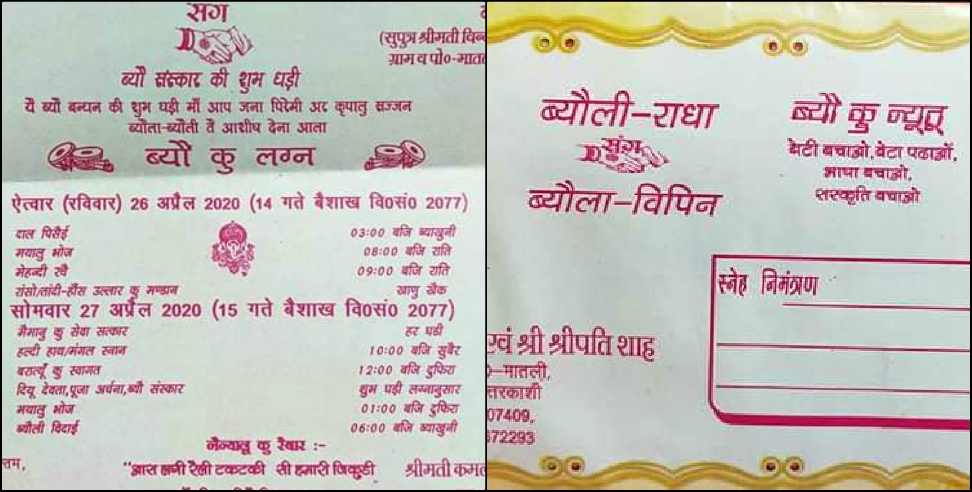 संग
(सुपुत्र श्रीमती
ग्राम व पो०-मात
ब्यौ संस्कार की शुभ घड़ी
ये ब्यौ बन्धन की शुभ घड़ी माँ आप जना पिरेमी अर कृपालु सज्जन
ब्यौला-ब्यौली तै आशीष देना आला
ब्यौ कु लग्न
ऐत्वार (रविवार) 26 अप्रैल 2020 (14 गते बैशाख वि०सं० 2077)
दाल पिसैई 03:00 बजि ब्याखुनी
मयालु भोज 08:00 बजि राति
मेहन्दी रचै 09:00 बजि राति
रांसो/तांदी-हौंस उल्लार कु मण्डान खाणु खैक
सोमवार 27 अप्रैल 2020 (15 गते बैशाख वि०सं० 2077)
मैमानु कु सेवा सत्कार हर घड़ी
हल्दी हाथ/मंगल स्नान 10:00 बजि सुबैर
बरात्यूँ कु स्वागत 12:00 बजि दुफिरा
दियू देवता,पूजा अर्चना,ब्यौ संस्कार शुभ घड़ी लग्नानुसार
मयालु भोज 01:00 बजि दुफिरा
ब्यौली विदाई 06:00 बजि ब्याखुनी
नैन्यालू कु रैबार :-
त्तम,
"आस लगी रैली टकटकी सी हमारी जिकुड़ी
श्रीमती कमल
ब्यौली-राधा
संग
ब्यौला-विपिन
ब्यौ कु न्यूतू
बेटी बचाओ, बेटा पढाओं,
भाषा बचाओ,
संस्कृति बचाओ
स्नेह निमंत्रण
एवं श्री श्रीपति शाह
०-मातली,
त्तरकाशी
07409,
572293